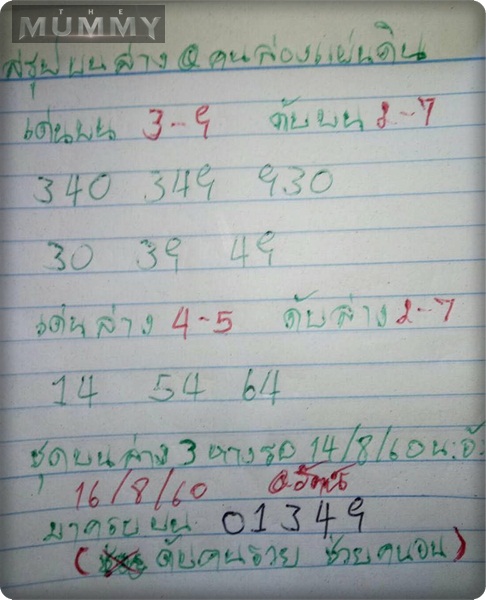 THE
MUMMY
สรุปบนล่าง @ คนล่องแผ่นดิน
เด่นบน 3-9 ดับบน 2-7
340 349 930
30 39 49
เด่นล่าง 4-5 ดับล่าง 2-7
14 54 64
ชุดบนล่าง 3 ทางรอ 14/8/60 น:
16/8/60
มาครบบน 01349
( ดับคนรวย ช่วยคนจน)